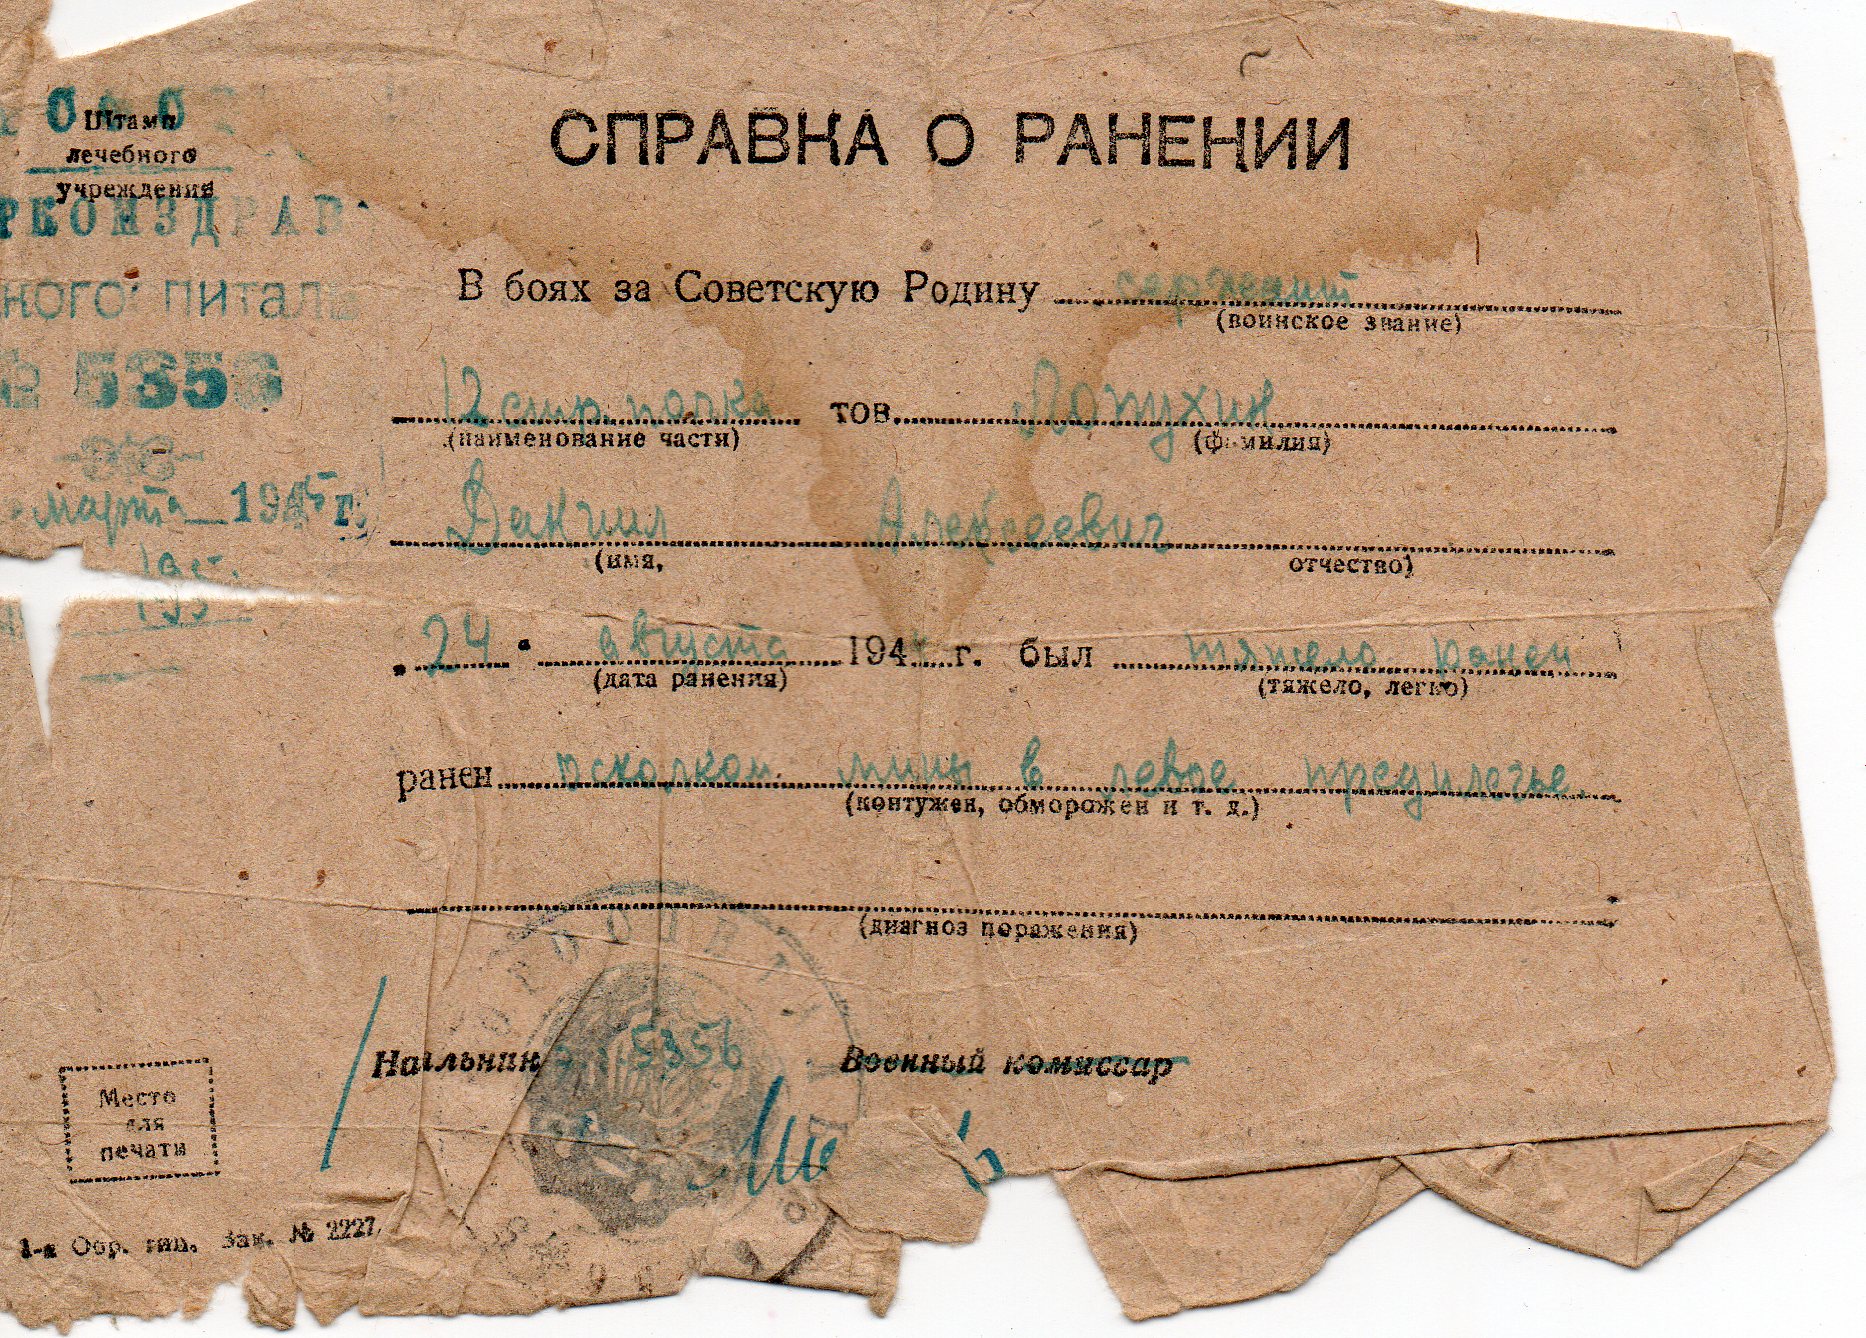 Штамп
лечебного
учреждения
РКОМЗДРАВ
ногоспиталь
№ 5356
марта 1945 г.
195
СПРАВКА О РАНЕНИИ
В боях за Советскую Родину сержант
(воинское звание)
12 стр. полка тов. Лопухин
(наименование части) (фамилия)
Даниил Алексеевич
(имя, отчество)
„24“ августа 194 г. был тяжело ранен
(дата ранения) (тяжело, легко)
ранен осколком мины в левое предплечье.
(контужен, обморожен и т. д.)
(диагноз поражения)
Начальник 5356 Военный комиссар
Место
для
печати
1-я Обр. тип. Зак. № 2227